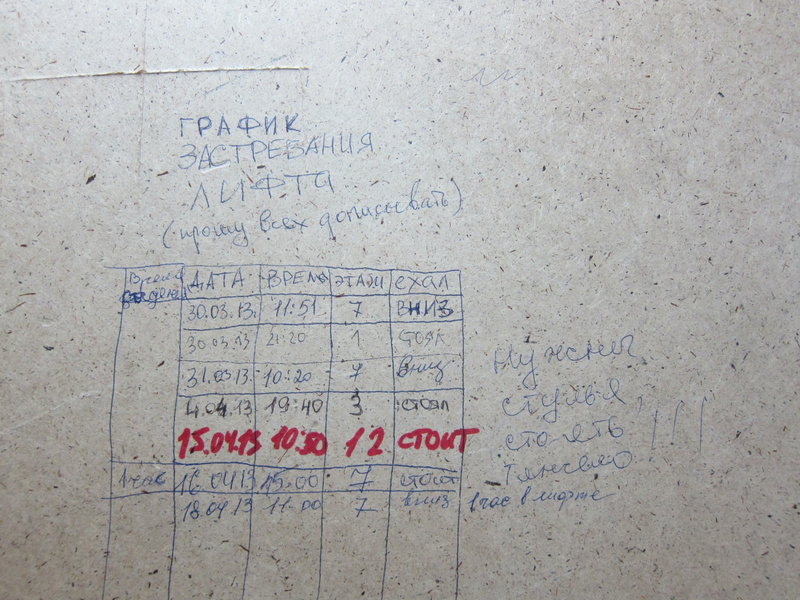 ГРАФИК
ЗАСТРЕВАНИЯ
ЛИФТА
(прошу всех дописывать)
Время ДАТА ВРЕМЯ ЭТАЖ ЕХАЛ
30.03.13. 11:51 7 ВНИЗ
30.03.13 21:20 1 СТОЯЛ
31.03.13. 10:20 7 Вниз
4.04.13 19:40 3 стоял
15.04.13 10:50 12 СТОИТ
1 час 16.04.13 15:00 7 стоял
18.04.13 11:00 7 вниз 1 час в лифте
Нужны
стулья,
стоять
тяжело !!!